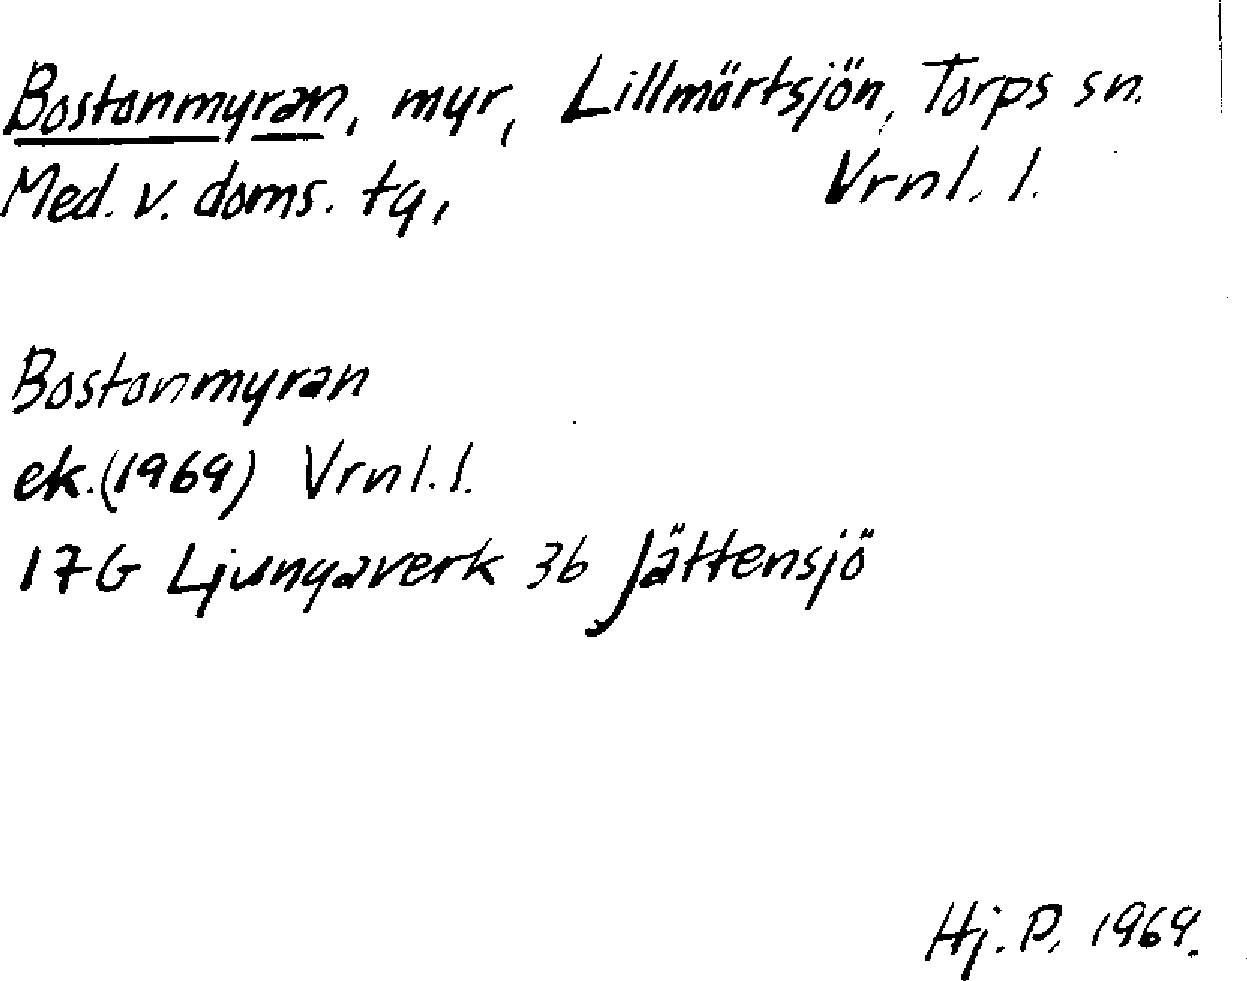 Bostonmyran, myr, Lillmörtsjön, Torps sn.
Med. v. doms. tg, Vrnl. l.
Bostonmyran
ek. (1969) Vrnl. l.
17G Ljungaverk 3b Jättensjö
Hj. P. 1969.